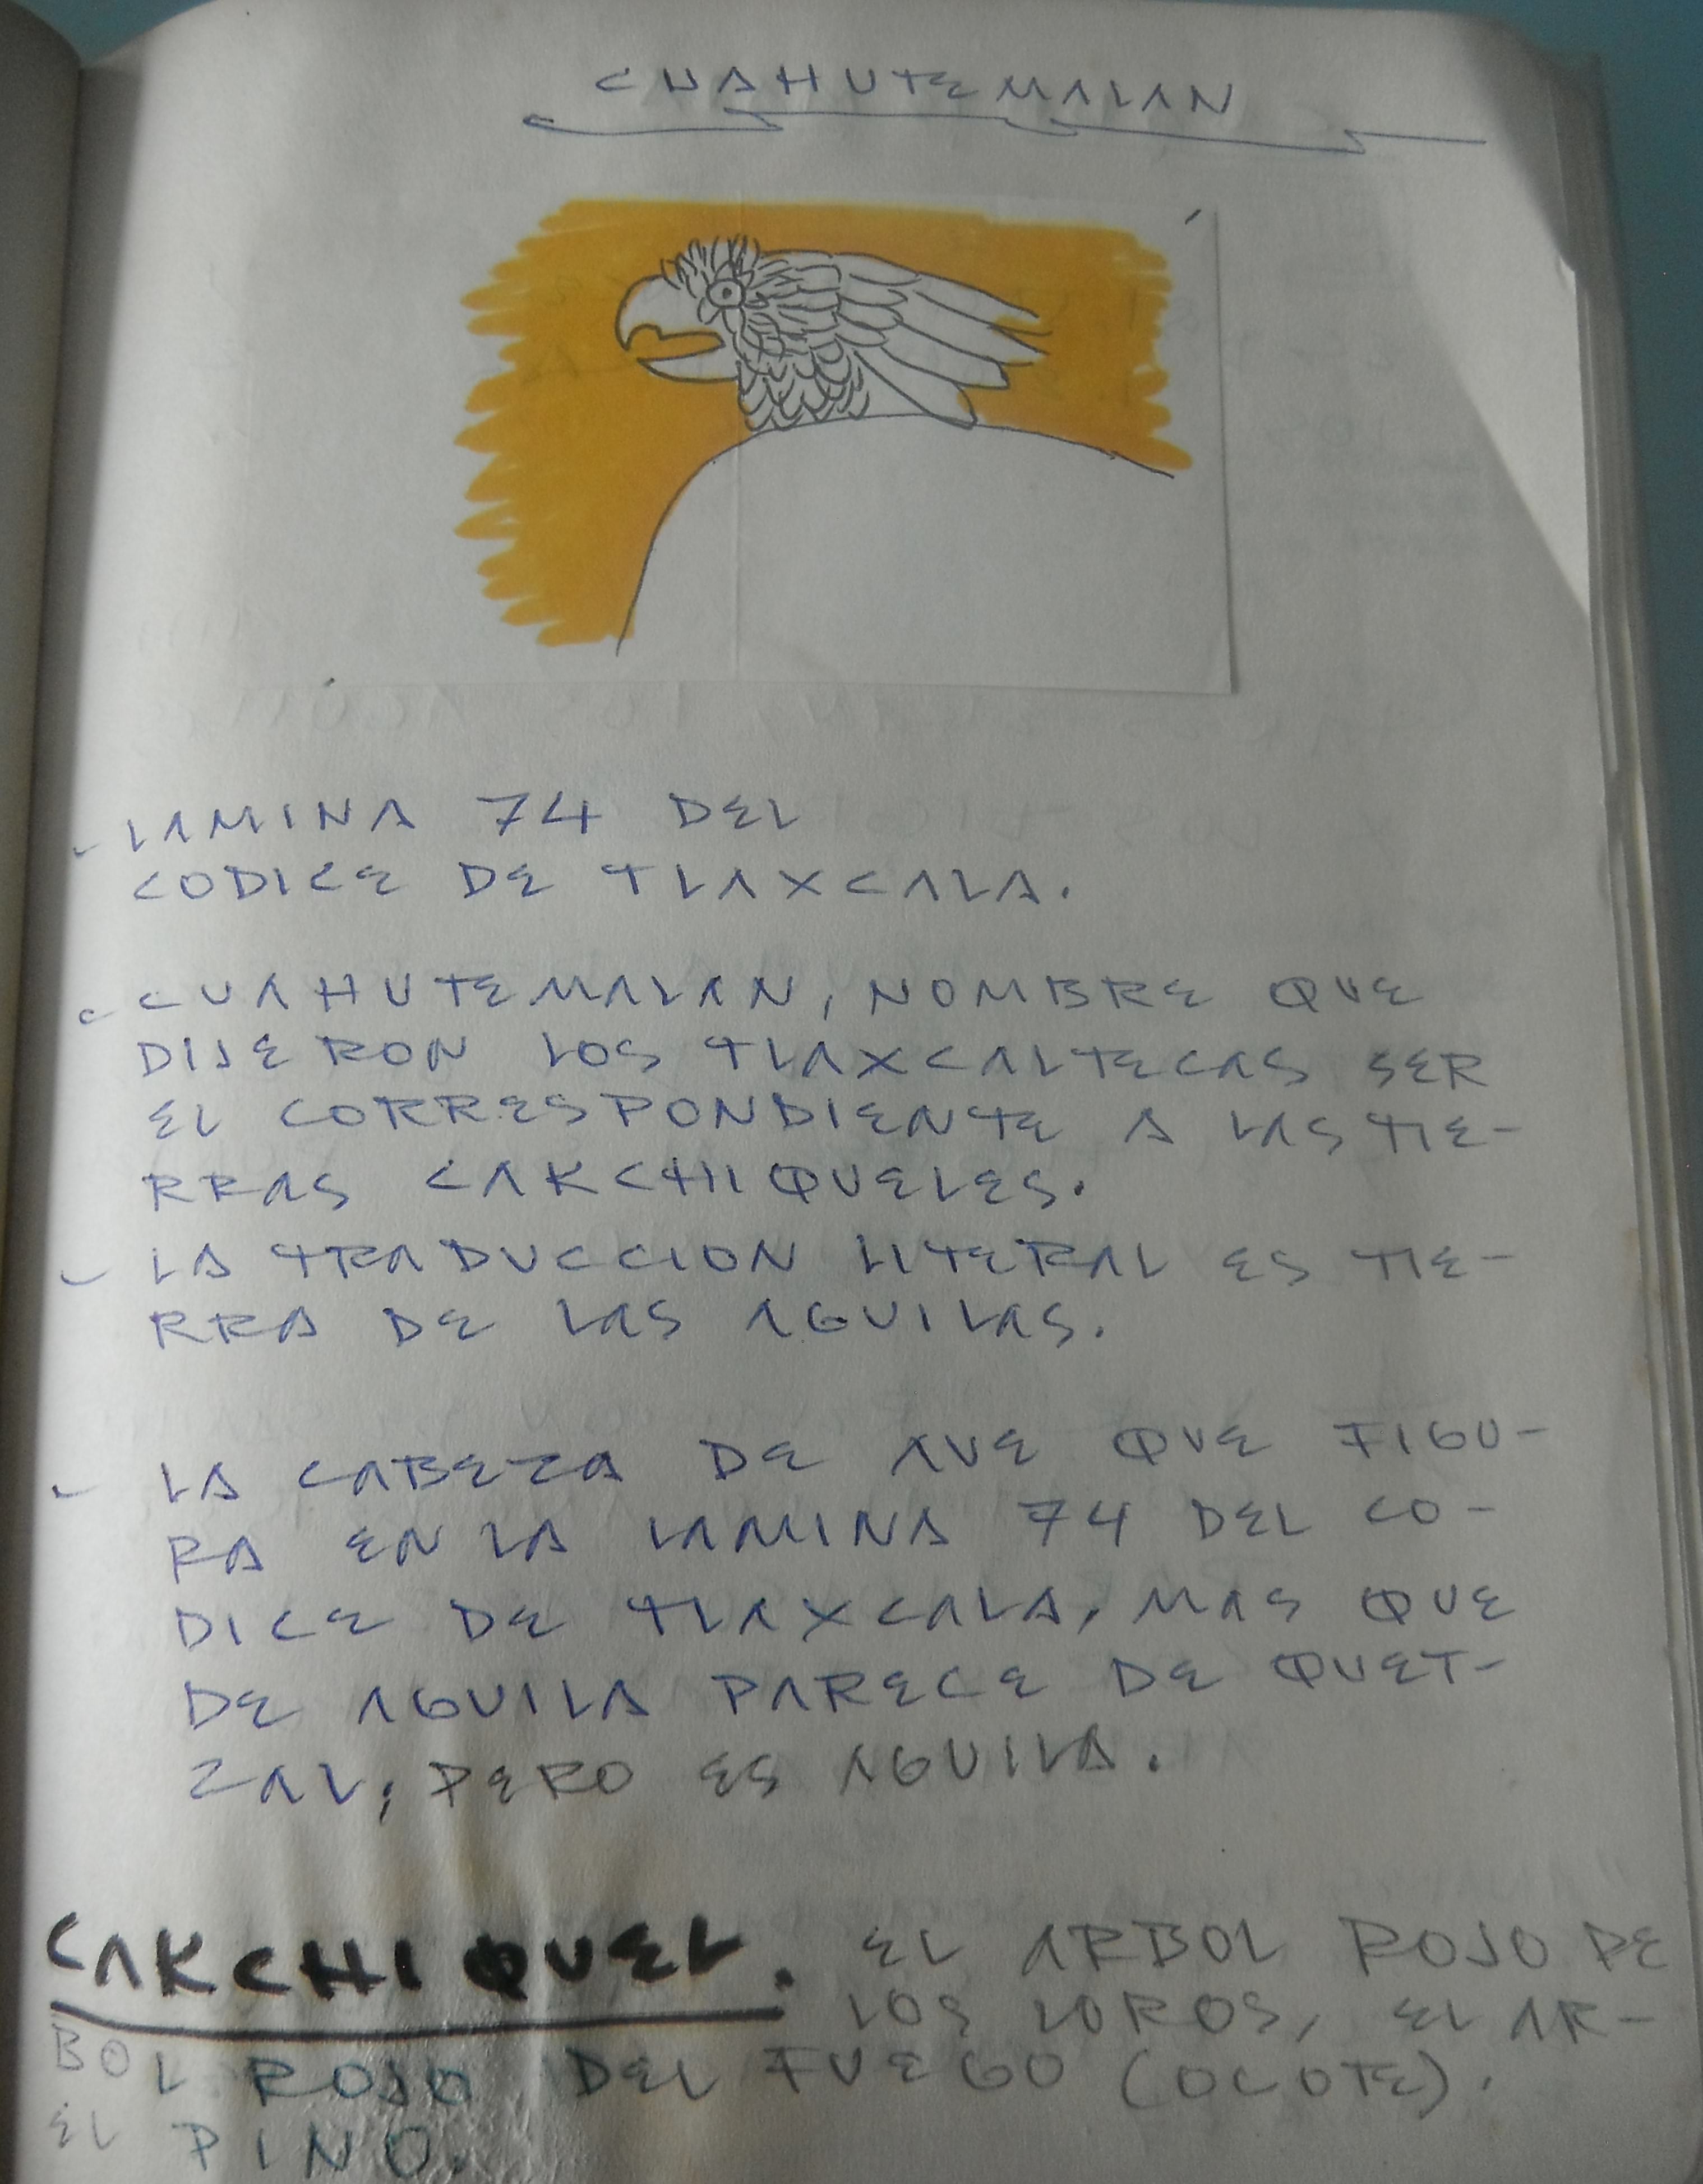 CUAHUTEMALAN
LAMINA 74 DEL
CODICE DE TLAXCALA.
CUAHUTEMALAN, NOMBRE QUE
DIJERON LOS TLAXCALTECAS SER
EL CORRESPONDIENTE A LAS TIE-
RRAS CAKCHIQUELES.
LA TRADUCCION LITERAL ES TIE-
RRA DE LAS AGUILAS.
LA CABEZA DE AVE QUE FIGU-
RA EN LA LAMINA 74 DEL CO-
DICE DE TLAXCALA, MAS QUE
DE AGUILA PARECE DE QUET-
ZAL; PERO ES AGUILA.
CAKCHIQUEL. EL ARBOL ROJO DE
LOS LOROS, EL AR-
BOL ROJO DEL FUEGO (OCOTE).
EL PINO.